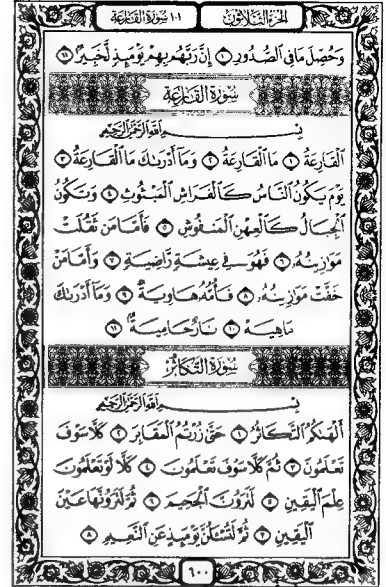 الجزء الثلاثون
١٠١ سورة القارعة
وَحُصِّلَ مَا فِي ٱلصُّدُورِ ١٠ إِنَّ رَبَّهُم بِهِمْ يَوْمَئِذٍ لَّخَبِيرٌ ١١
سُورَةُ القَارِعَةِ
بِسْمِ ٱللَّهِ ٱلرَّحْمَٰنِ ٱلرَّحِيمِ
ٱلْقَارِعَةُ ١ مَا ٱلْقَارِعَةُ ٢ وَمَآ أَدْرَىٰكَ مَا ٱلْقَارِعَةُ ٣
يَوْمَ يَكُونُ ٱلنَّاسُ كَٱلْفَرَاشِ ٱلْمَبْثُوثِ ٤ وَتَكُونُ
ٱلْجِبَالُ كَٱلْعِهْنِ ٱلْمَنفُوشِ ٥ فَأَمَّا مَن ثَقُلَتْ
مَوَٰزِينُهُۥ ٦ فَهُوَ فِى عِيشَةٍ رَّاضِيَةٍ ٧ وَأَمَّا مَنْ
خَفَّتْ مَوَٰزِينُهُۥ ٨ فَأُمُّهُۥ هَاوِيَةٌ ٩ وَمَآ أَدْرَىٰكَ
مَا هِيَهْ ١٠ نَارٌ حَامِيَةٌۢ ١١
سُورَةُ التَّكَاثُرِ
بِسْمِ ٱللَّهِ ٱلرَّحْمَٰنِ ٱلرَّحِيمِ
أَلْهَىٰكُمُ ٱلتَّكَاثُرُ ١ حَتَّىٰ زُرْتُمُ ٱلْمَقَابِرَ ٢ كَلَّا سَوْفَ
تَعْلَمُونَ ٣ ثُمَّ كَلَّا سَوْفَ تَعْلَمُونَ ٤ كَلَّا لَوْ تَعْلَمُونَ
عِلْمَ ٱلْيَقِينِ ٥ لَتَرَوُنَّ ٱلْجَحِيمَ ٦ ثُمَّ لَتَرَوُنَّهَا عَيْنَ
ٱلْيَقِينِ ٧ ثُمَّ لَتُسْـَٔلُنَّ يَوْمَئِذٍ عَنِ ٱلنَّعِيمِ ٨
٦٠٠